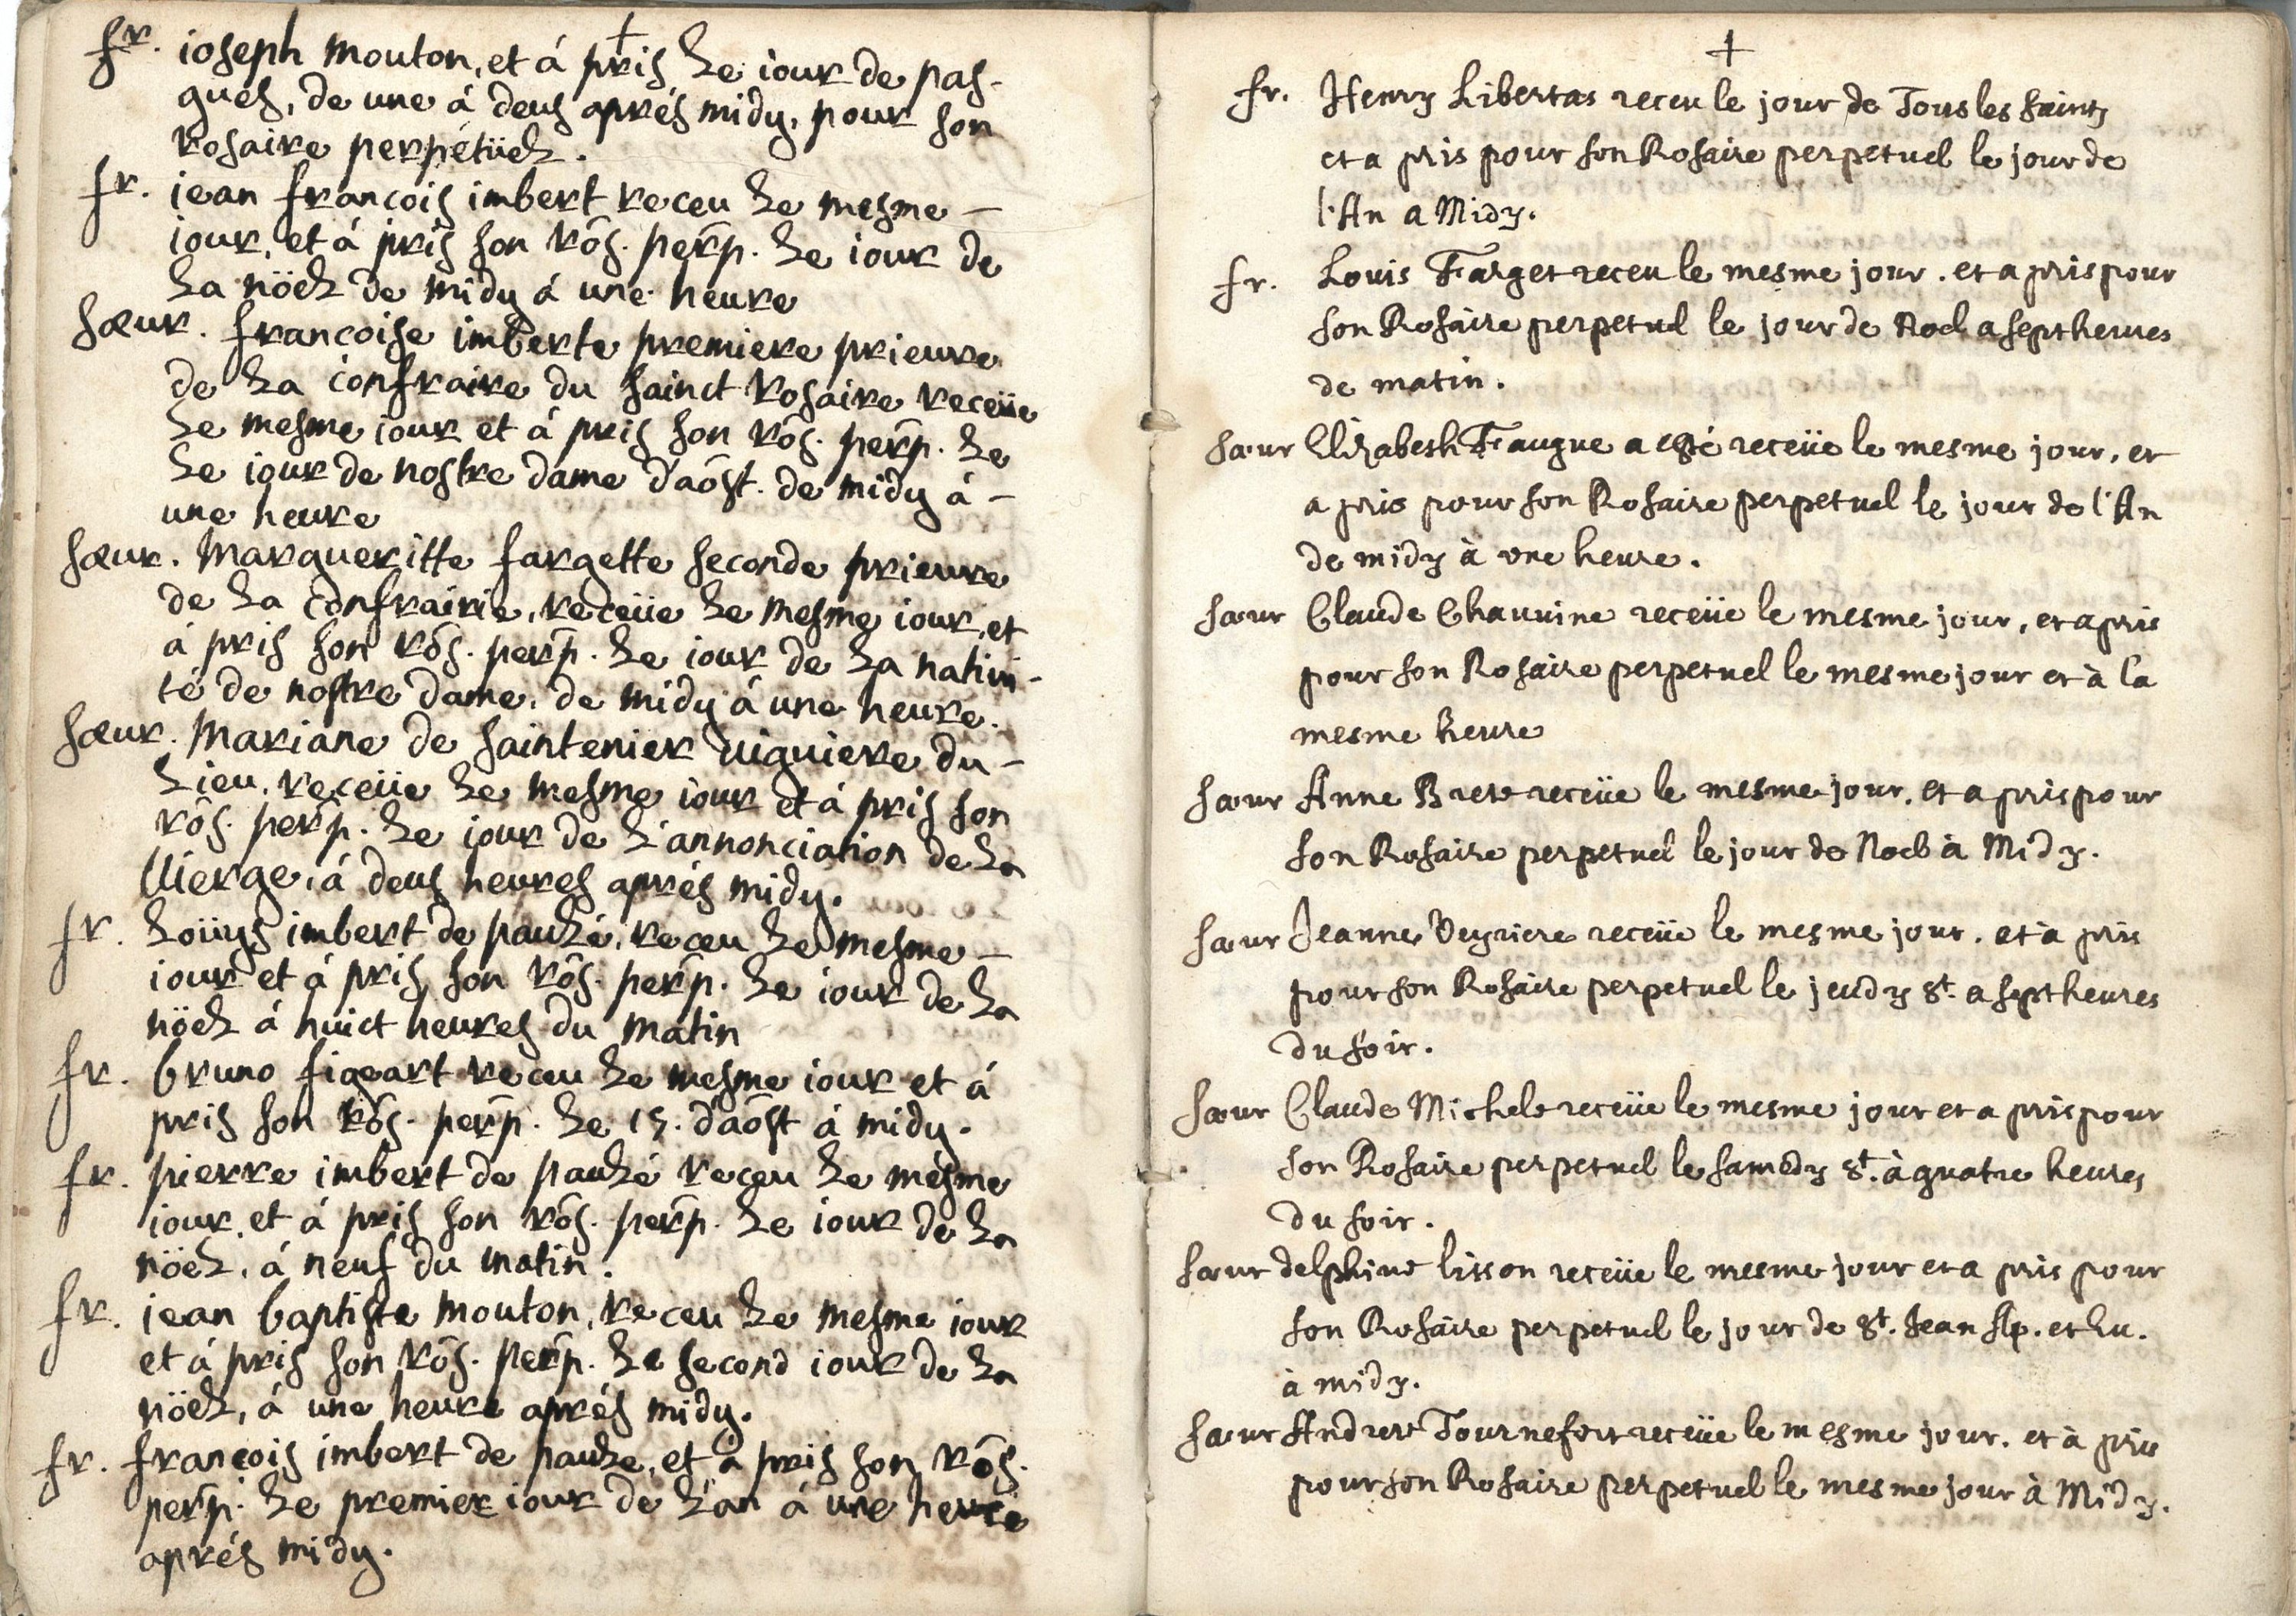 +
fr. ioseph mouton, et á pris le iour de pas-
ques, de une á deus aprés midy, pour son
rosaire perpétüel.
fr. iean françois imbert receu le mesme –
iour, et á pris son rôs. perp. le iour de
la nöel de midy á une heure
sœur. francoise imberte premiere prieure
de la confraire du sainct rosaire receüe
le mesme iour et á pris son rôs. perp. le
le iour de nostre dame d'aôst. de midy á –
une heure
sœur. Margueritte fargette seconde prieure
de la confrairie, receüe le mesme iour, et
á pris son rôs. perp. le iour de la nativi-
té de nostre dame, de midy á une heure.
sœur. Mariane de saintenier viguiere du –
lieu, receüe le mesme iour et á pris son
rôs. perp. le iour de l'annonciation de la
Vierge, á deus heures aprés midy.
fr. loüys imbert de paulé, receu le mesme –
iour et á pris son rôs. perp. le iour de la
nöel á huict heures du matin
fr. bruno figeart receu le mesme iour et á
pris son rôs. perp. le 15. d'aôst á midy.
fr. pierre imbert de paulé receu le mésme
iour, et á pris son rôs. perp. le iour de la
nöel, á neuf du matin.
fr. jean baptiste mouton, receu le mesme iour
et á pris son rôs. perp. le second iour de la
nöel, á une heure aprés midy.
fr. françois imbert de paule, et á pris son rôs.
perp. le premier iour de l'an á une heure
aprés midy.
+
fr. Henry Libertas receu le jour de Tous les saints
et a pris pour son Rosaire perpetuel le jour de
l'An a Midy.
fr. Louis Farget receu le mesme jour. et a pris pour
son Rosaire perpetuel le jour de Noel a sept heures
de matin.
sœur Elizabeth Faugue a esté receüe le mesme jour, et
a pris pour son Rosaire perpetuel le jour de l'An
de midy à vne heure.
sœur Claude Chauuine receüe le mesme jour, et a pris
pour son Rosaire perpetuel le mesme jour et à la
mesme heure
sœur Anne Brete receüe le mesme jour. et a pris pour
son Rosaire perpetuel le jour de Noel à Midy.
sœur Jeanne Veyriere receüe le mesme jour. et à pris
pour son Rosaire perpetuel le jeudy st. a sept heures
du soir.
sœur Claude Michele receüe le mesme jour et a pris pour
son Rosaire perpetuel le samedy st. à quatre heures
du soir.
sœur delphine lisson receüe le mesme jour et a pris pour
son Rosaire perpetuel le jour de st. Jean Ap. et Eu.
à midy.
sœur Andree Tournefort receüe le mesme jour. et à pris
pour son Rosaire perpetuel le mesme jour à Midy.